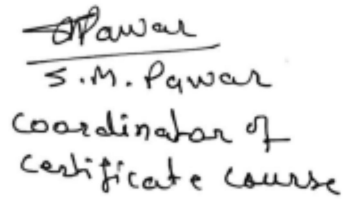 SPawar
S.M. Pawar
Coordinator of
certificate course